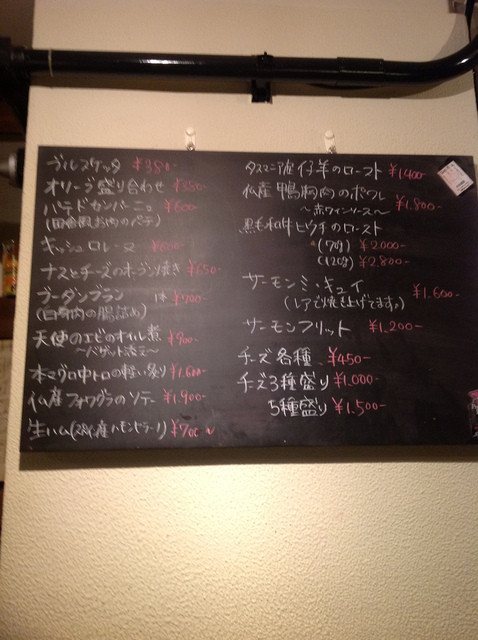 ブルスケッタ ¥380-
オリーブ盛り合わせ ¥380-
パテドカンパーニュ ¥600-
(田舎風お肉のパテ)
キッシュロレーヌ
ナスとチーズのオーブン焼き ¥650-
ブーダンブラン 1本 ¥700-
(白身肉の腸詰め)
天使のエビのオイル煮 ¥900-
～バゲット添え～
本マグロ中トロの軽い炙り ¥1.600-
仏産フォワグラのソテー ¥1.900-
生ハム(スペイン産ハモンセラーノ) ¥700
タスマニア産仔羊のロースト ¥1.400-
仏産鴨胸肉のポワレ ¥1.800-
～赤ワインソース～
黒毛和牛ヒウチのロースト
(70g) ¥2.000-
(120g) ¥2.800-
サーモンミ・キュイ ¥1.600-
(レアで焼き上げてます。)
サーモンフリット ¥1.200-
チーズ各種 ¥450-
チーズ3種盛り ¥1.000-
5種盛り ¥1.500-